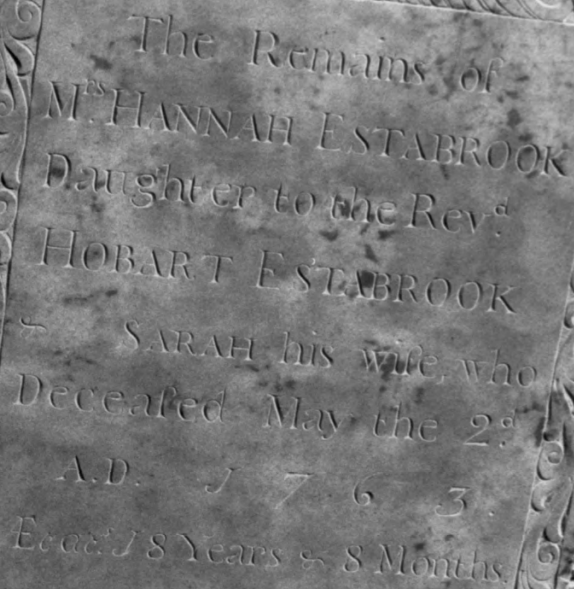 The Remains of
Mrs. HANNAH ESTABROOK
Daughter to the Revd.
HOBART ESTABROOK
~ SARAH his wife, who
Deceaſed May the 2d.
A.D. 1763.
Etat. 18 Years ~ 8 Months.